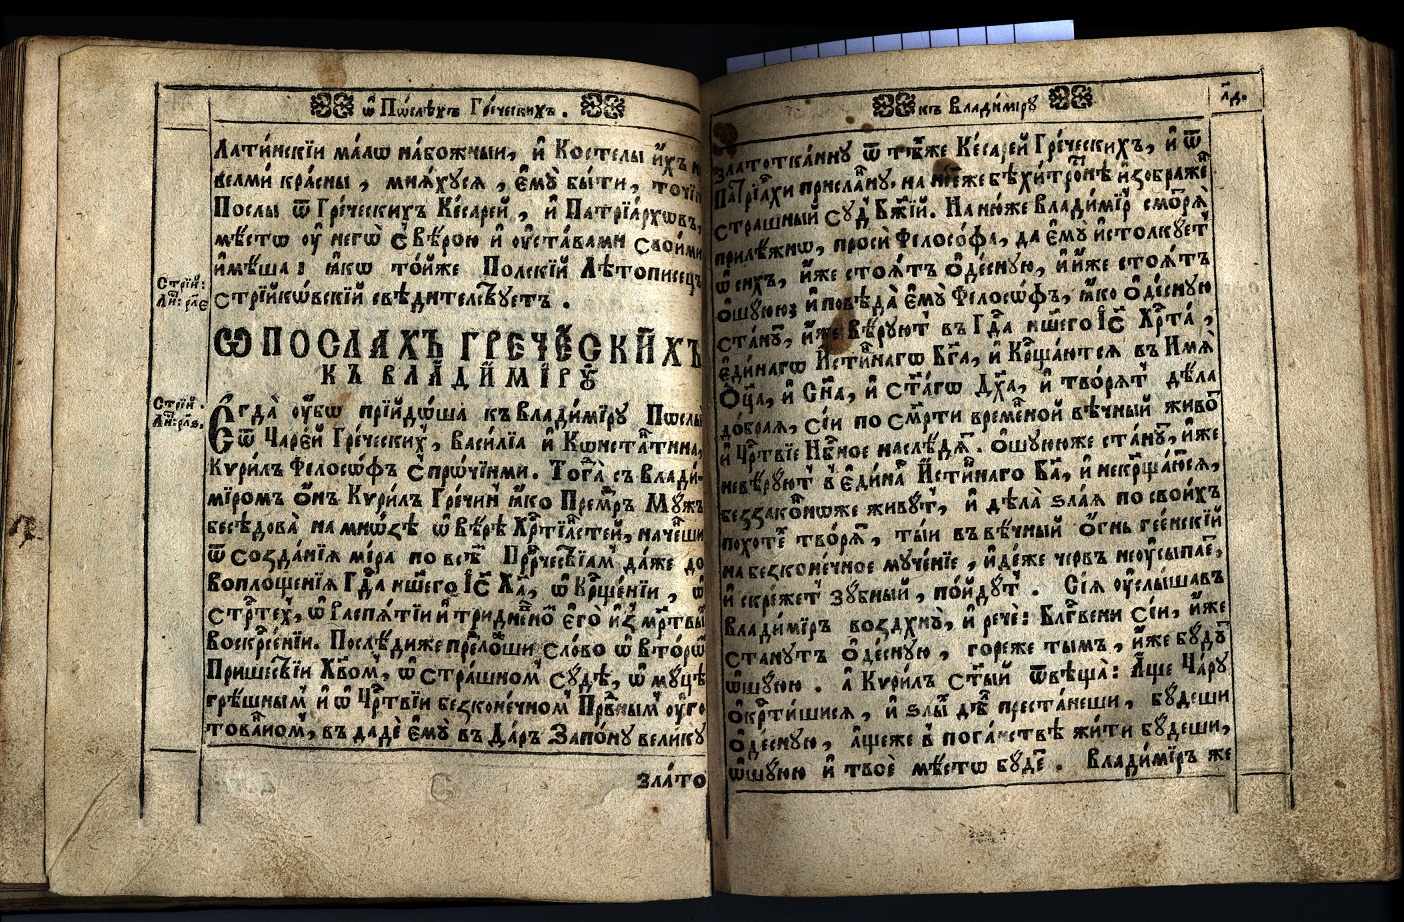 ѿ Пѡслѣхъ Гре́ческихъ .
Лати́нскїи ма́лѡ на́божныи, и҆ Костелы и҆́хъ н
велми кра́сны , мня́хуся , є҆мꙋ̀ бы́ти , точїю
Послы ѿ Гре́ческихъ Ке́сарей , и҆ Патрїа́рхѡвъ,
мѣ́стѡ оу҆ негѡ̀ с̾ вѣ́рою и҆ оу҆ста́вами свои́ми
и҆мѣ́ша : ꙗ҆́кѡ то́йже По́лскїй Лѣ́тописецъ
Стрїйкѡ́вскїй свѣди́телствꙋетъ .
Стрїй:
Ли҆: рл҃є
Ѡ ПОСЛАХЪ ГРЕЧЕСКИХЪ
КЪ ВЛАДИМІРꙊ
Стрїй.
Є҆гда̀ оу҆бѡ прїйдо́ша къ Влади́мїрꙋ Пѡслы
ѿ Царе́й Гре́ческих̾, Васи́лїа и҆ Кѡнста́тина,
Кѵри́лъ Фелосѡ́фъ с̾ прѡ́чїими . Тогда̀ съ Влади́-
мїромъ ѻ҆́нъ Кѵри́лъ Гре́чин̾ ꙗ҆́ко Премⷣръ Мꙋ́жъ
бесѣ́дова̀ на мнѡ́зѣ ѡ҆ вѣ́рѣ Хрⷭ҇тїа́нстей, наче́нши
ѿ созда́нїя мі́ра по всѣ́м̾ Прⷪ҇ро́чествїам̾ да́же до
Воплоще́нїя Гдⷭ҇а нш҃его І҆с҃ Ха҃, ѡ҆ Крⷭ҇ще́нїи , ѡ҆
стрⷭ҇тех̾, ѡ҆ Распя́тїи и҆ тридне́вном̾ є҆го̀ и҆з̾ ме́ртвы
Воскрⷭ҇е́нїи. Послѣди́же предложи сло́во ѡ҆ вто́рѡм̾
Прише́ствїи Хв҃ом̾, ѡ҆ стра́шном̾ сꙋдѣ̀, ѡ҆ мꙋ́цѣ
грѣ́шным̾ и҆ ѡ҆ Црⷭ҇твїи безконе́чном̾ Прв҃ным̾ оу҆го
това́ном̾, въдадѐ є҆мꙋ̀ въ Да́ръ Запо́нꙋ вели́кꙋ
зла́то
къ Влади́мїрꙋ
л҃д.
златотка́ннꙋ ѿ тѣ́хже Ке́сарей Гре́ческихъ, и҆ ѿ
Патрїа́рхи присла́нꙋ. на не́йже бѣ̀ хи́трѡстнѣ и҆зображе́н
стра́шный Сꙋ́д̾ Бж҃їй. На ню́же Влади́мїр̾ смотря̀
прилѣ́жнѡ, проси̑ Фелосо́фа, да є҆мꙋ̀ и҆столкꙋ́ет̾
ѡ҆ сихъ, и҆̀же стоя́тъ ѻ҆десную, и҆ и҆̀же стоя́тъ
ѻ҆шꙋюю: и҆ повѣ́да̀ є҆мꙋ̀ Фелосѡ́фъ, ꙗ҆́ко ѻ҆деснꙋю
ста́нꙋт̾, и҆̀же вѣ́рꙋют̾ въ Гдⷭ҇а нш҃его І҆с҃ Хрⷭ҇та̀ ,
є҆ди́наго И҆́стиннаго Бг҃а, и҆ Крⷭ҇ща́ются въ И́мя
Ѻц҃а, и҆ Сн҃а, и҆ Ст҃а́гѡ Дх҃а, и҆ твѡ́рят̾ дѣла
до́брая, сі́и по сме́рти време́нной вѣ́чный живо́т
и҆ Црⷭ҇твїе Нбⷭ҇ное наслѣ́дят̾ . ѻ҆шꙋююже ста́нꙋт̾, и҆̀же
невѣ́рꙋют̾ в̾ є҆ди́наго И҆́стиннаго Бг҃а, и҆ некрⷭ҇ща́ются,
беззако́ннѡже живꙋ́т̾, и҆ дѣла̀ ѕла́я по свои́хъ
похоте́х̾ творя́т̾ , ты́и въ вѣ́чный ѻ҆́гнь гее́нскїй
на безконе́чное мꙋче́нїе , и҆дѣ́же червъ неоу҆сыпа́ет,
и҆ скре́жет̾ зꙋ́бный, по́йдꙋт̾ . Сі́я оу҆слы́шавъ
Влади́мїръ воздхнꙋ̀, и҆ речѐ: Блгⷭ҇ве́ни сі́и, и҆̀же
ста́нꙋтъ ѻ҆деснꙋю , го́реже тымъ , и҆̀же бꙋ́дꙋт
ѡ҆шꙋюю . а҆ Кѵри́лъ ст҃ы́й ѿвѣща̀: А҆́ще Ца́рꙋ
ѻ҆крⷭ҇ти́шися , и҆ ѕлы́х̾ дѣ́л̾ преста́неши , бꙋ́деши
ѻ҆деснꙋю , а҆́щеже в̾ пога́нствѣ жи́ти бꙋ́деши,
ѡ҆шꙋюю и҆ твоѐ мѣ́сто бꙋ́дет̾ . Влади́мїръ же